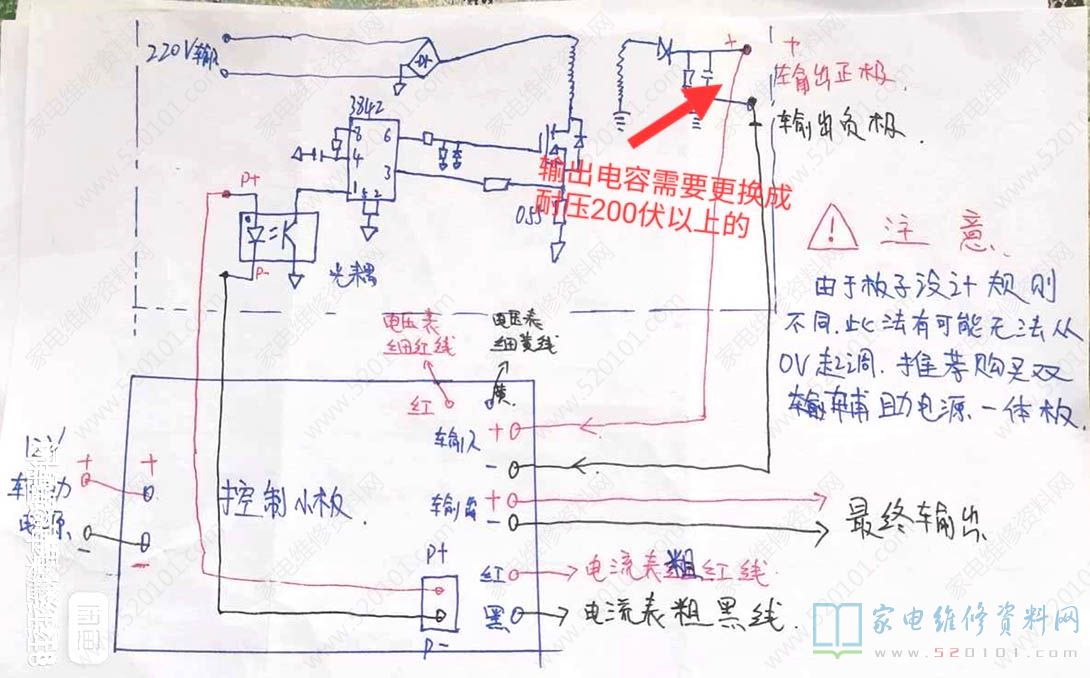 220V输入
3842
8
6
4
3
1
5
2
P+
P-
光耦
+
+
输出正极.
输出负极.
-
输出电容需要更换成
耐压200伏以上的
注 意.
由于板子设计规则
不同.此法有可能无法从
0V起调.推荐购买双
输出辅助电源一体板.
电压表
细红线
电压表
细黄线
红
黄
输入
+
-
12V
辅助
电源
+
-
+
-
控制小板.
输出
+
-
最终输出
P+
P-
红
电流表粗红线.
黑
电流表粗黑线.
家电维修资料网
www.520101.com